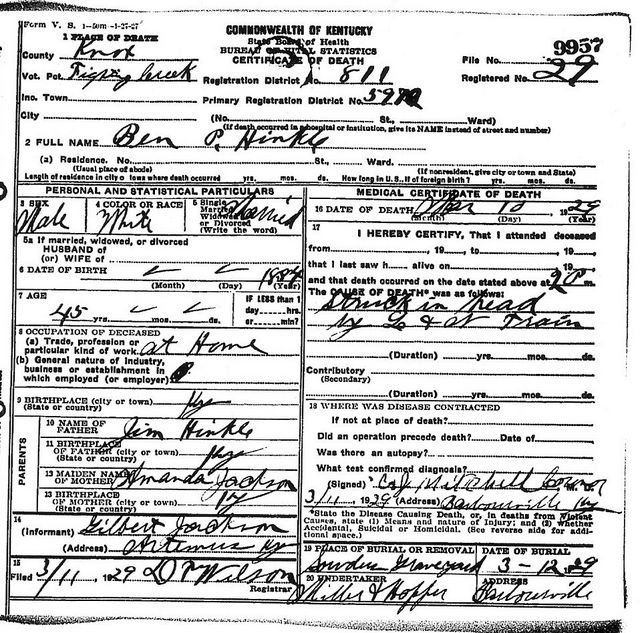 Form V. S. 1-50m-1-27-27
1 PLACE OF DEATH
County Knox
Vot. Pct. Fighting Creek
Inc. Town
City
COMMONWEALTH OF KENTUCKY
State Board of Health
BUREAU OF VITAL STATISTICS
CERTIFICATE OF DEATH
Registration District No. 811
Primary Registration District No. 5970
File No. 9957
Registered No. 29
(No. St., Ward)
(If death occurred in a hospital or institution, give its NAME instead of street and number)
2 FULL NAME Ben P. Hinkle
(a) Residence. No. St., Ward.
(Usual place of abode) (If nonresident, give city or town and State)
Length of residence in city or town where death occurred yrs. mos. ds. How long in U.S., if of foreign birth? yrs. mos. ds.
PERSONAL AND STATISTICAL PARTICULARS
3 SEX Male
4 COLOR OR RACE White
5 Single Married Widowed or Divorced (Write the word) Married
5a If married, widowed, or divorced
HUSBAND of
(or) WIFE of
6 DATE OF BIRTH 1884
(Month) (Day) (Year)
7 AGE 45 yrs. mos. ds.
IF LESS than 1
day hrs.
or min?
8 OCCUPATION OF DECEASED
(a) Trade, profession or
particular kind of work at Home
(b) General nature of industry,
business or establishment in
which employed (or employer)
9 BIRTHPLACE (city or town) Ky
(State or country)
PARENTS
10 NAME OF
FATHER Jim Hinkle
11 BIRTHPLACE
OF FATHER (city or town) Ky
(State or country)
12 MAIDEN NAME
OF MOTHER Amanda Jackson
13 BIRTHPLACE
OF MOTHER (city or town) Ky
(State or country)
14
(Informant) Gilbert Jackson
(Address) Artemus Ky
15
Filed 3/11, 1929 Wilson
Registrar
MEDICAL CERTIFICATE OF DEATH
16 DATE OF DEATH Mar 10 1929
(Month) (Day) (Year)
17
I HEREBY CERTIFY, That I attended deceased
from , 19 , to , 19
that I last saw h alive on , 19
and that death occurred on the date stated above at 9 P m.
The CAUSE OF DEATH* was as follows:
Struck in head
by L & N Train
(Duration) yrs. mos. ds.
Contributory
(Secondary)
(Duration) yrs. mos. ds.
18 WHERE WAS DISEASE CONTRACTED
If not at place of death?
Did an operation precede death? Date of
Was there an autopsy?
What test confirmed diagnosis?
(Signed) Mitchell Coroner
3/11 1929 (Address) Barbourville Ky
*State the Disease Causing Death, or, in deaths from Violent
Causes, state (1) Means and nature of Injury; and (2) whether
Accidental, Suicidal or Homicidal. (See reverse side for addi-
tional space.)
19 PLACE OF BURIAL OR REMOVAL Graveyard
DATE OF BURIAL 3-12, 29
20 UNDERTAKER Miller & Hopper
ADDRESS Barbourville